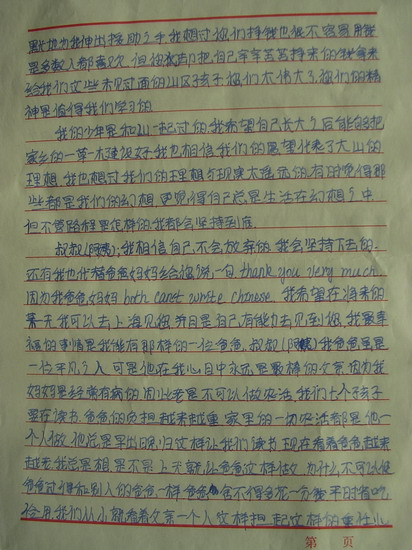 默地为我伸出援助之手,我想过你们挣钱也很不容易用钱
是多数人都喜欢 但你我却把自己辛辛苦苦挣来的钱拿来
给我们这些未见过面的山区孩子 你们太伟大了,你们的精
神是值得我们学习的
我的少年是和山一起过的,我希望自己长大了后能够把
家乡的一草一木建设好,我也相信我们的展望代表了大山的
理想,我也想过我们的理想与现实太遥远的,有时觉得那
些都是我们的幻想,更觉得自己总是生活在幻想之中
但不管路程是怎样的,我都会坚持到底.
叔叔(阿姨):我相信自己不会放弃的,我会坚持下去的.
还有我也代替爸爸妈妈给你说一句 thank you very much.
因为我爸爸,妈妈 both can't write chinese. 我希望在将来的
某一天,我可以去上海见您,希望自己有能力去见到您,我最幸
福的事情是我能有那样的一位爸爸,叔叔(阿姨)我爸爸虽是
一位平凡之人 可是他在我心目中永远是最棒的父亲 因为我
妈妈是经常有病的,因此老是不可以做农活,我们七个孩子
是在读书,爸爸的负担越来越重 家里的一切农活都是他一
个人做 他总是早出晚归,这样让我们读书,现在看着爸爸越来
越老,我总是想,是不是上天就让爸爸这样做 为什么不可以使
爸爸过得和别人的爸爸一样 爸爸舍不得多花一分钱 平时省吃
俭用,我们从小就看着父亲一个人这样担起这样的重任,心
第 页